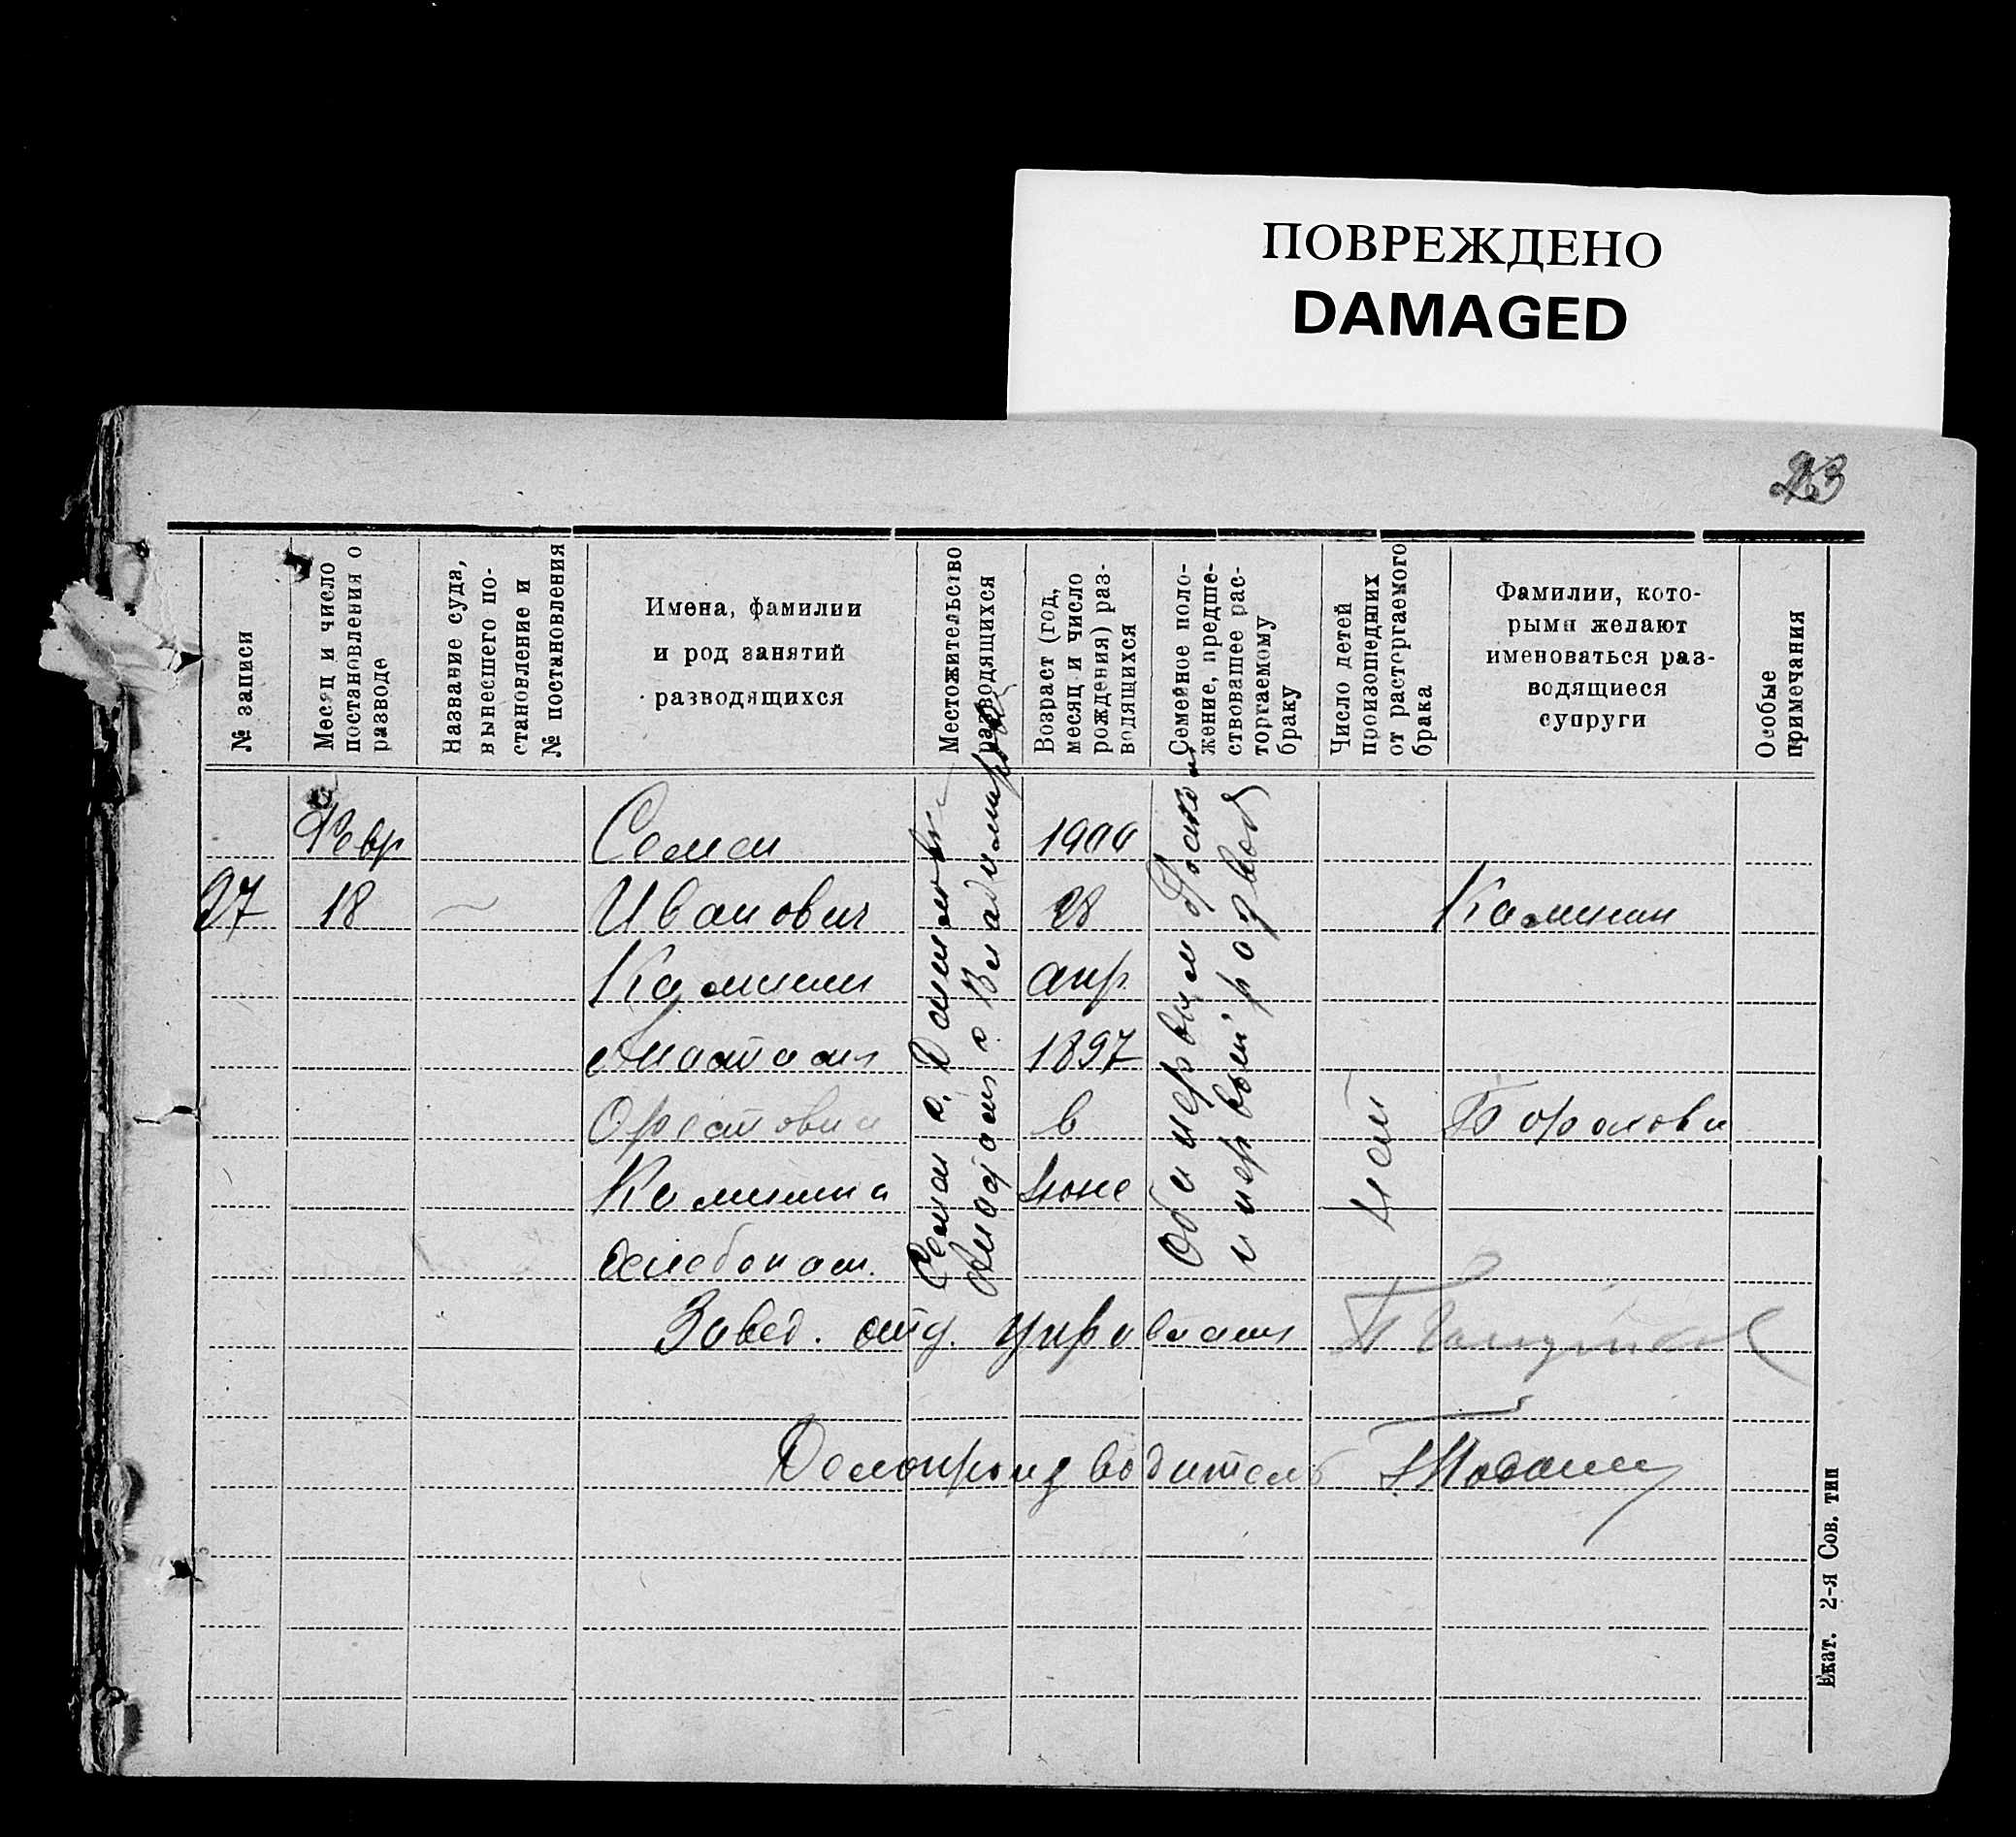 ПОВРЕЖДЕНО
DAMAGED
23
№ записи
Месяц и число
постановления о
разводе
Название суда,
вынесшего по-
становление и
№ постановления
Имена, фамилии
и род занятий
разводящихся
Местожительство
разводящихся
Возраст (год,
месяц и число
рождения) раз-
водящихся
Семейное поло-
жение, предше-
ствовавшее рас-
торгаемому
браку
Число детей
происшедших
от расторгаемого
брака
Фамилии, кото-
рыми желают
именоваться раз-
водящиеся
супруги
Особые
примечания
27
Февр
18
Семен
Иванович
Калинин
Анастасия
Орестовна
Калинина
хлебопаш.
Семен с.
с. Владимировки
1900
28
апр
1897
в
июне
Оба первым браком
и первый развод
нет
Калинин
Завед. отд. управления
Делопроизводитель
Екат. 2-я Сов. тип